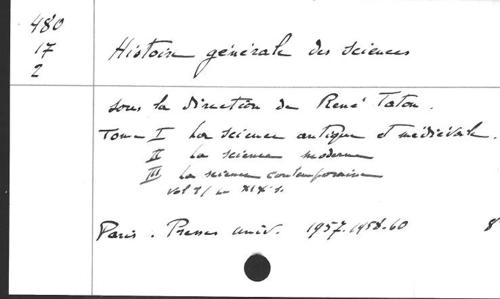 480
17
2
Histoire générale des sciences
sous la direction de René Taton.
Tome I La science antique et médiévale.
II La science moderne
III La science contemporaine
vol 1/ Le XIXe s.
Paris. Presses univ. 1957-1958-60 8